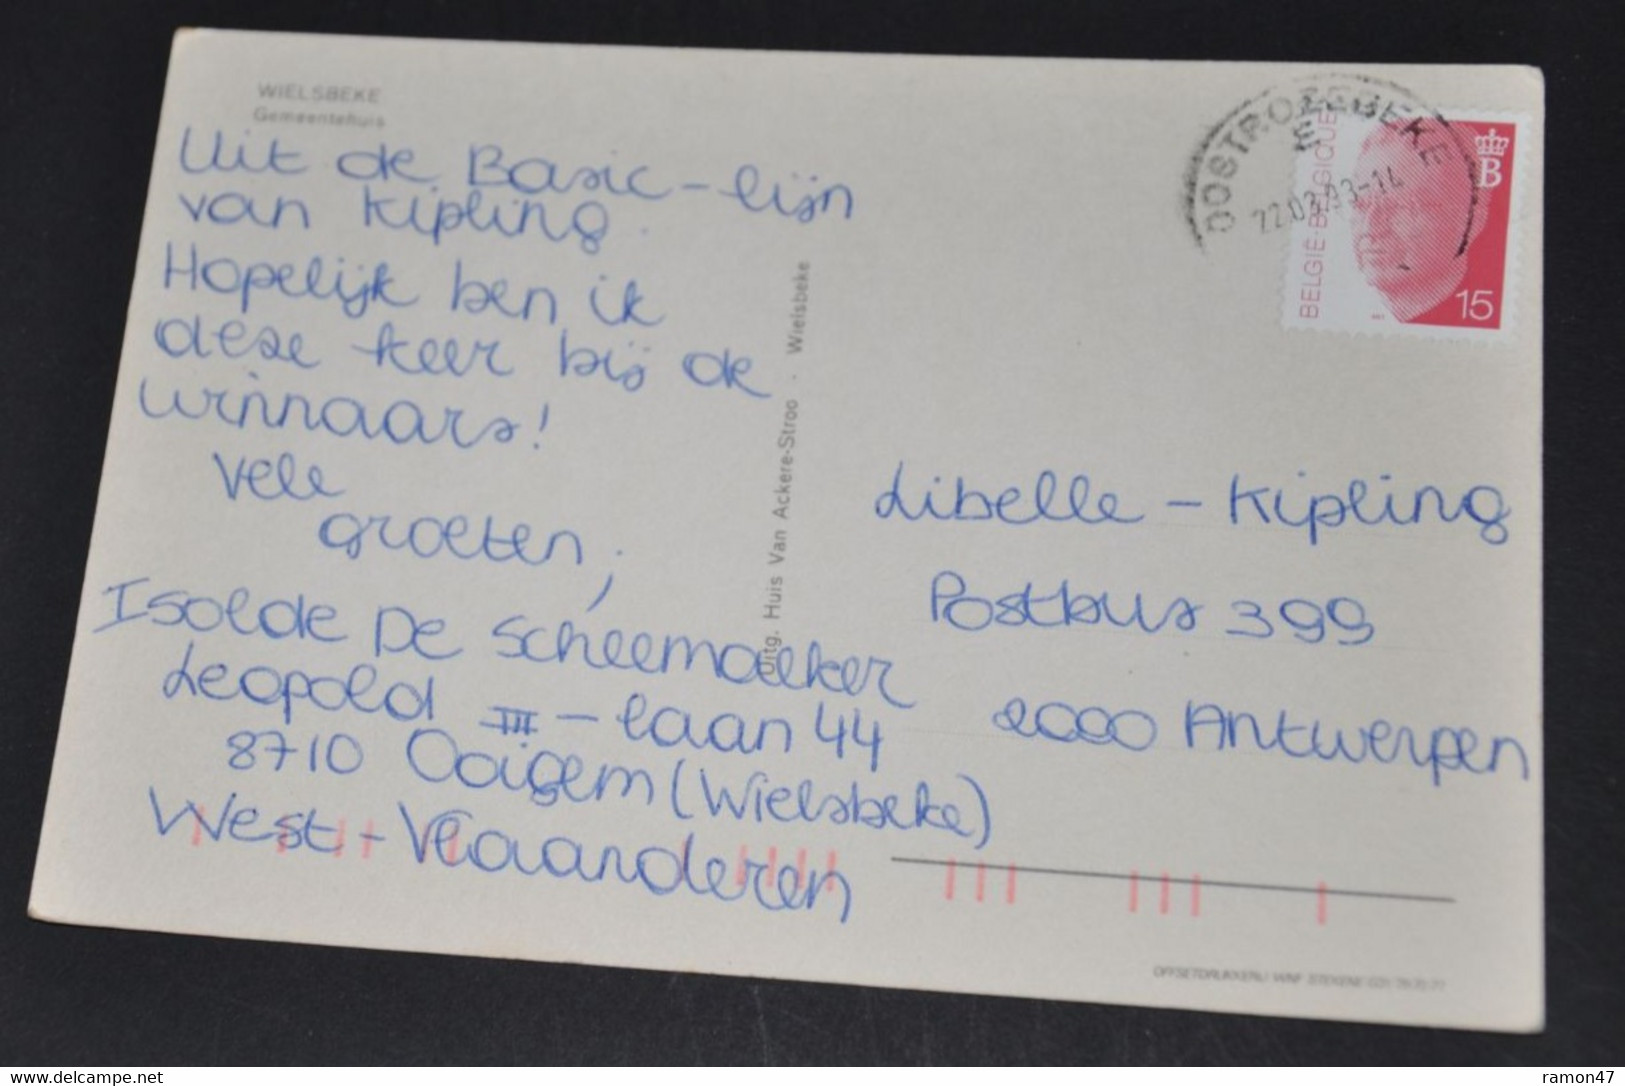 WIELSBEKE
Gemeentehuis
Uit de Basic-lijn
van Kipling.
Hopelijk ben ik
deze keer bij de
winnaars!
Vele
groeten,
Isolde De Scheemaeker
Leopold III-laan 44
8710 Ooigem (Wielsbeke)
West-Vlaanderen
Uitg. Huis Van Ackere-Stroo · Wielsbeke
OOSTROZEBEKE
E
BELGIË-BELGIQUE
B
15
Libelle - Kipling
Postbus 399
2000 Antwerpen
OFFSETDRUKKERIJ
ramon47